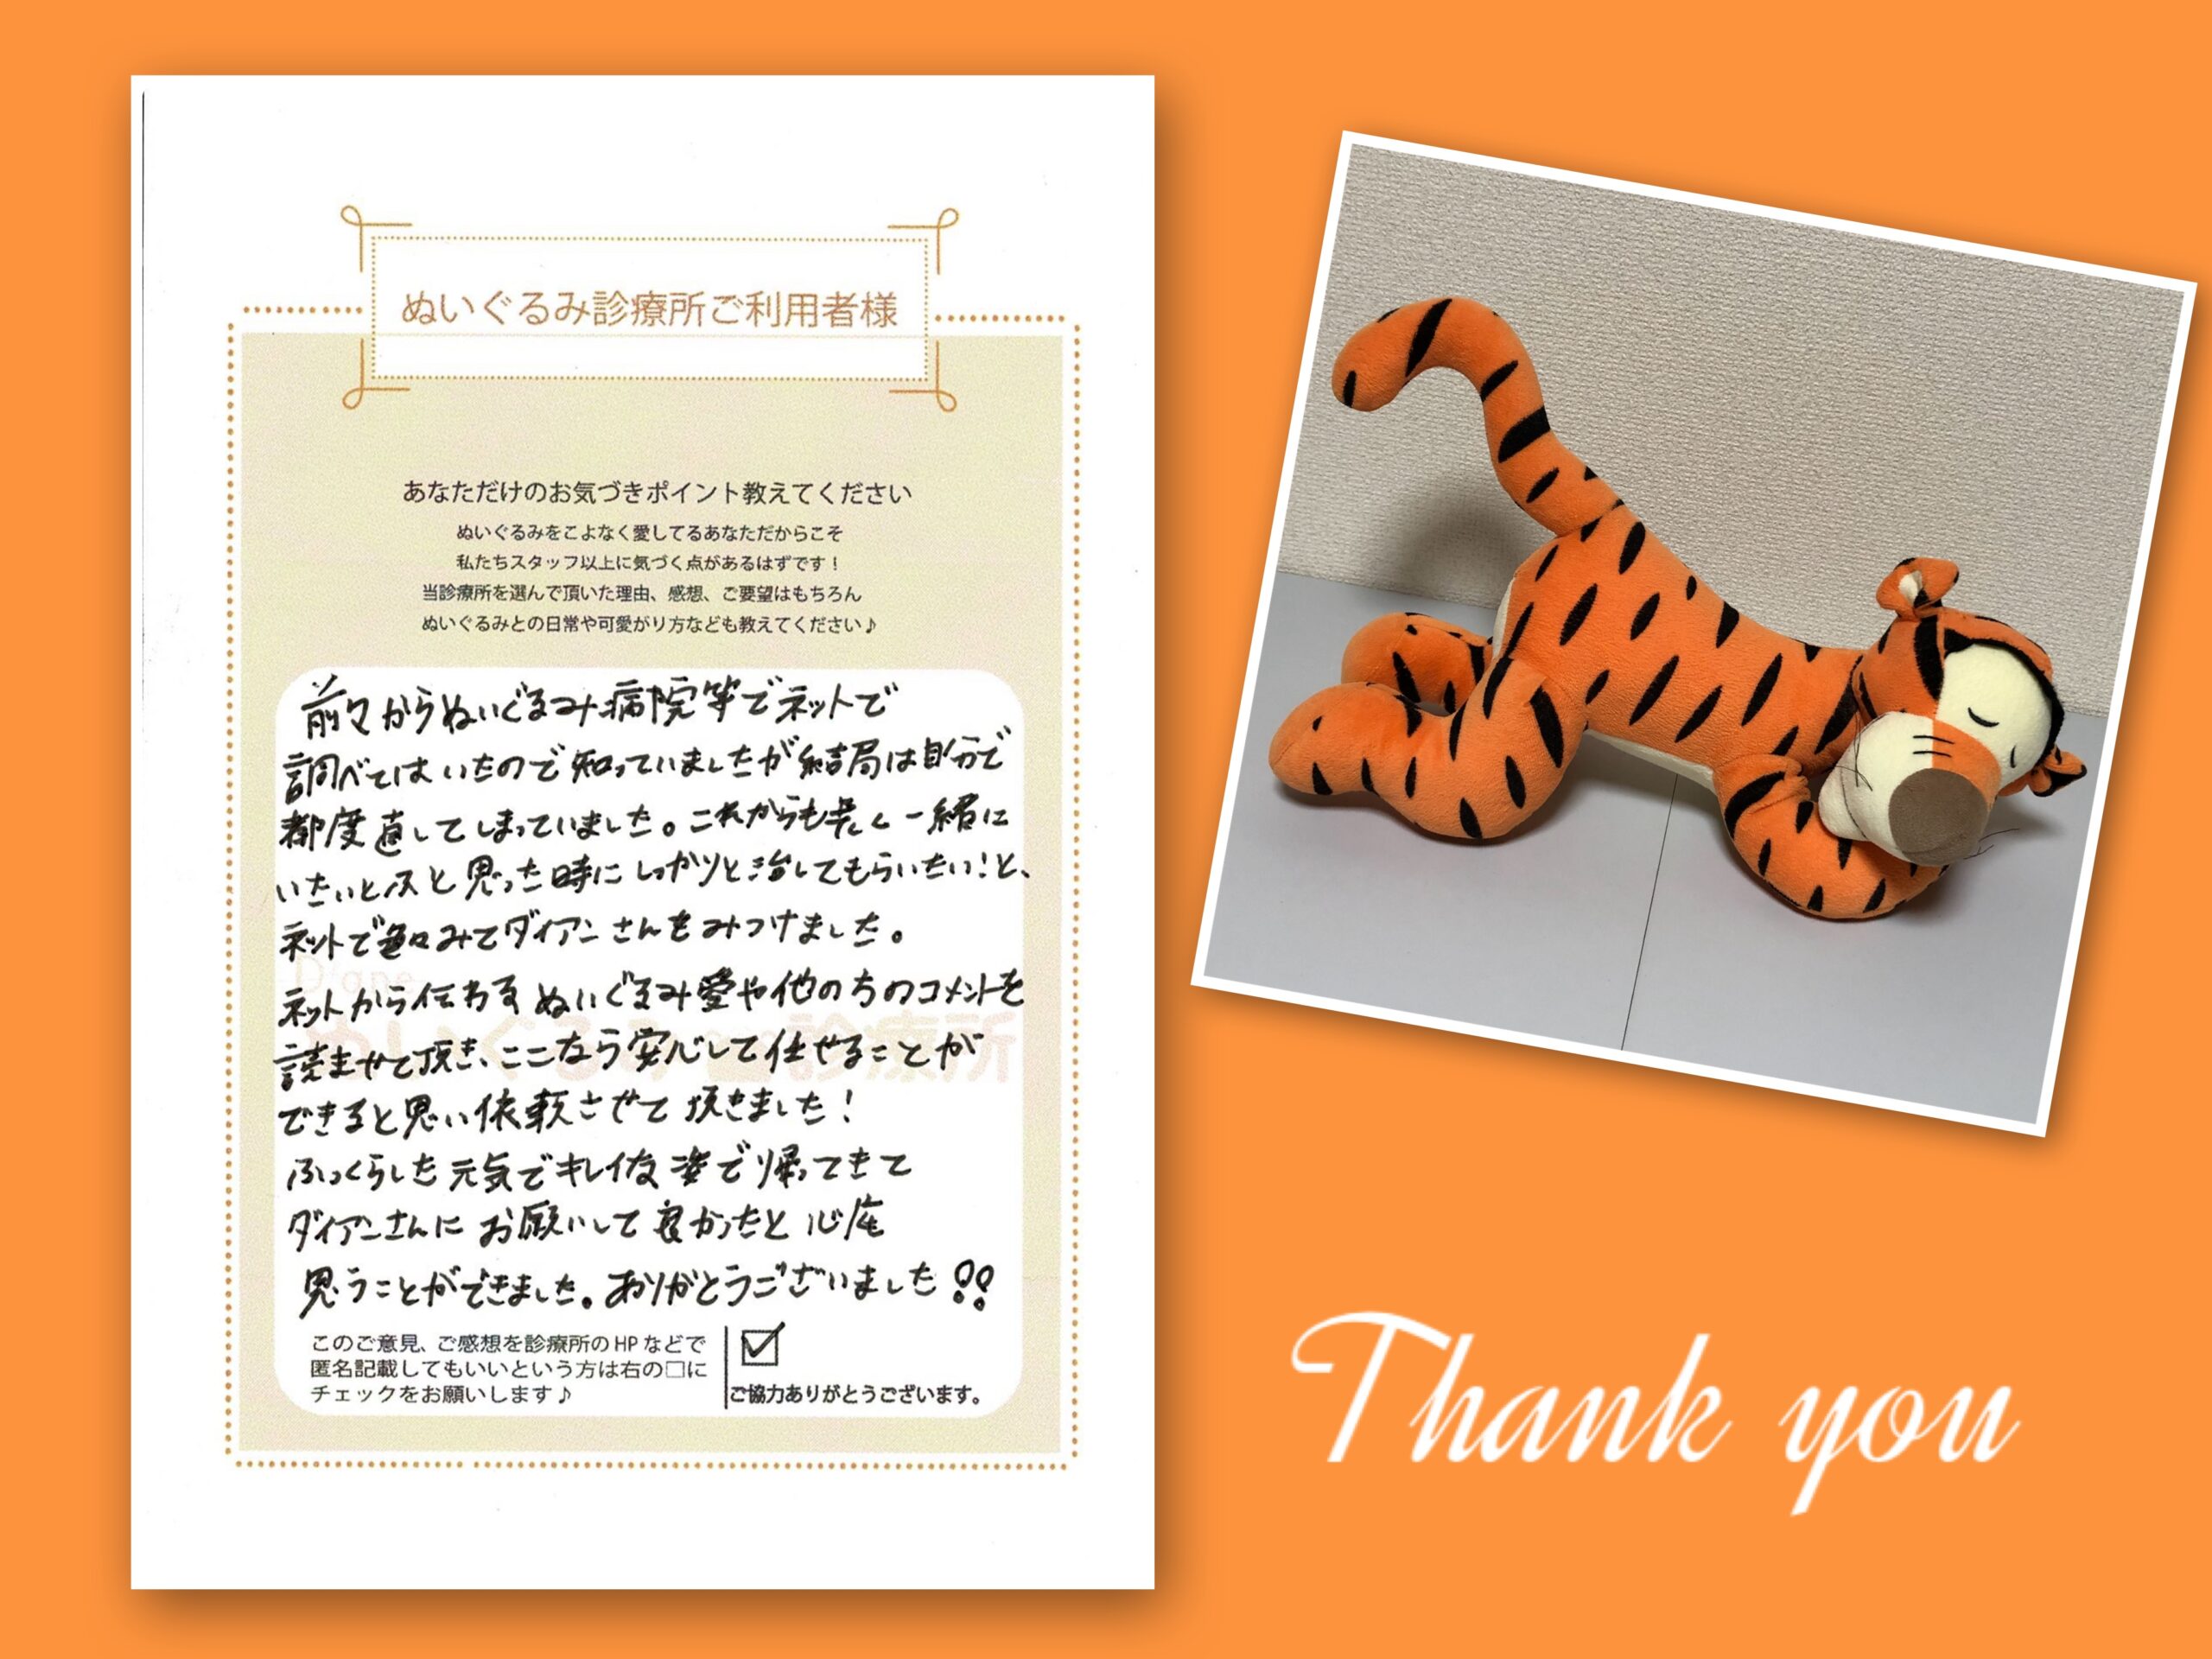 ぬいぐるみ診療所ご利用者様
あなただけのお気づきポイント教えてください
ぬいぐるみをこよなく愛してるあなただからこそ
私たちスタッフ以上に気づく点があるはずです！
当診療所を選んで頂いた理由、感想、ご要望はもちろん
ぬいぐるみとの日常や可愛がり方なども教えてください♪
前々からぬいぐるみ病院等でネットで
調べてはいたので知っていましたが結局は自分で
都度直してしまっていました。これからも末長く一緒に
いたいと思った時にしっかりと治してもらいたい！と、
ネットで色々みてダイアンさんをみつけました。
ネットから伝わるぬいぐるみ愛や他の方のコメントを
読ませて頂き、ここなら安心して任せることが
できると思い依頼させて頂きました！
ふっくらした元気でキレイな姿で帰ってきて
ダイアンさんにお願いして良かったと心底
思うことができました。ありがとうございました!!
このご意見、ご感想を診療所のHPなどで
匿名記載してもいいという方は右の□に
チェックをお願いします♪
ご協力ありがとうございます。
Diane
ぬいぐるみ診療所
Thank you